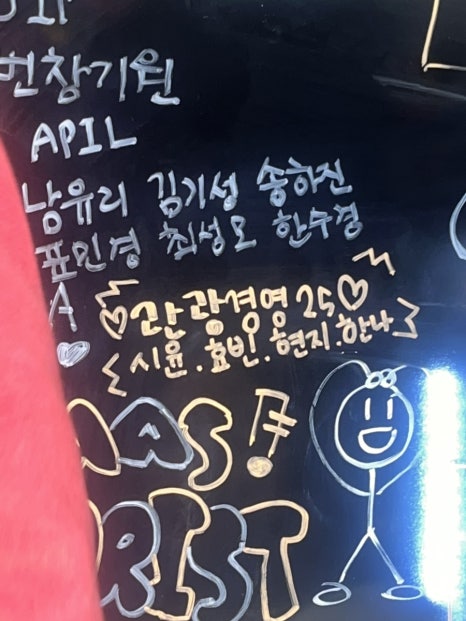 번창기원
APIL
남유리 김기성 송하진
표민경 최성모 한수경
A
♡관광경영25♡
시윤.효빈.현지.한나
AS!
RIST